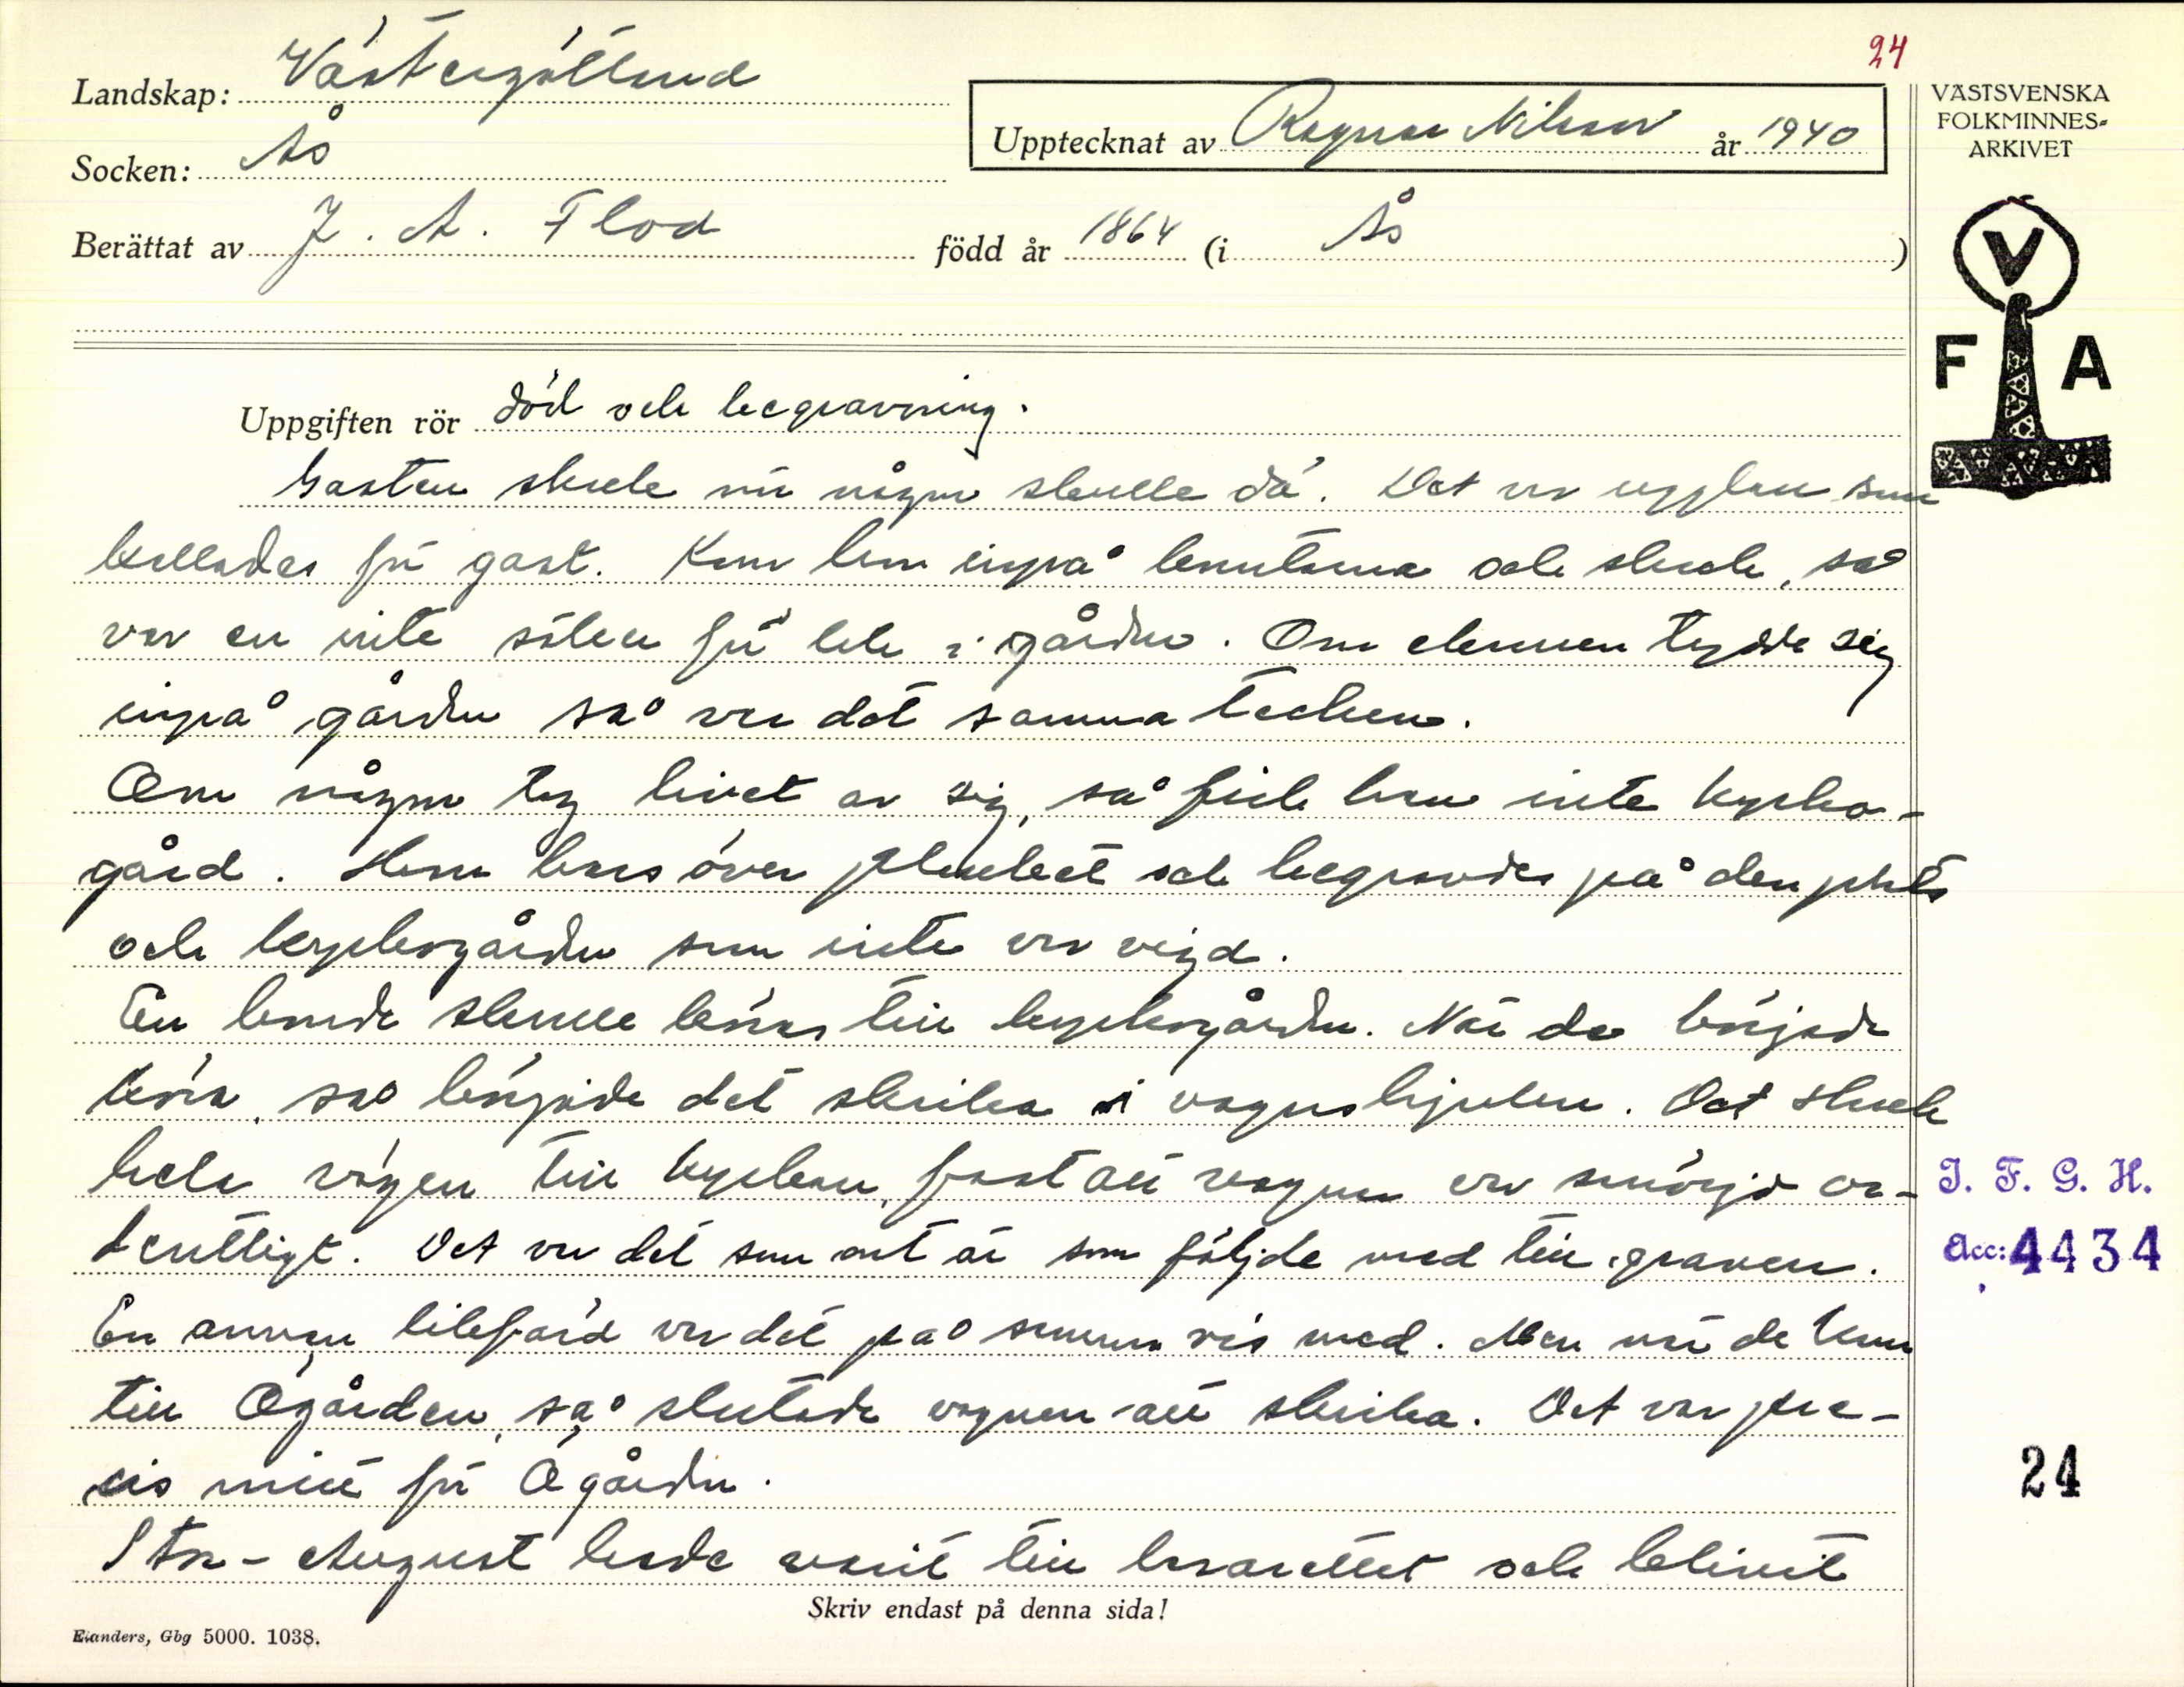 24
Landskap: Västergötland
Socken: Ås
Upptecknat av Ragnar Nilsson år 1940
Berättat av J. A. Flod född år 1864 (i Ås )
VÄSTSVENSKA
FOLKMINNES-
ARKIVET
V
F A
Uppgiften rör död och begravning.
Gasten skrek när någon skulle dö. Det var ugglan som
kallades för gast. Kom hon inpå knutarna och skrek, så
var en inte säker för lik i gården. Om den tydde sig
inpå gården så var det samma tecken.
Om någon tog livet av sig, så fick han inte kyrko-
gård. Han hivs över planket och begravdes på den plats
och kyrkogården som inte var vigd.
En bonde skulle köras till kyrkogården. När de började
köra, så började det skrika i vagnshjulen. Det skrek
hela vägen till kyrkan, fast att vagnen var smörjd or-
dentligt. Det var det som ont är som följde med till graven.
En annan likfärd var det på samma vis med. Men när de kom
till Ögården, så slutade vagnen att skrika. Det var pre-
cis mitt för Ögården.
Stor-August hade varit till lasarettet och blivit
Skriv endast på denna sida!
Elanders, Gbg 5000. 1038.
I. F. G. H.
Acc: 4434
24